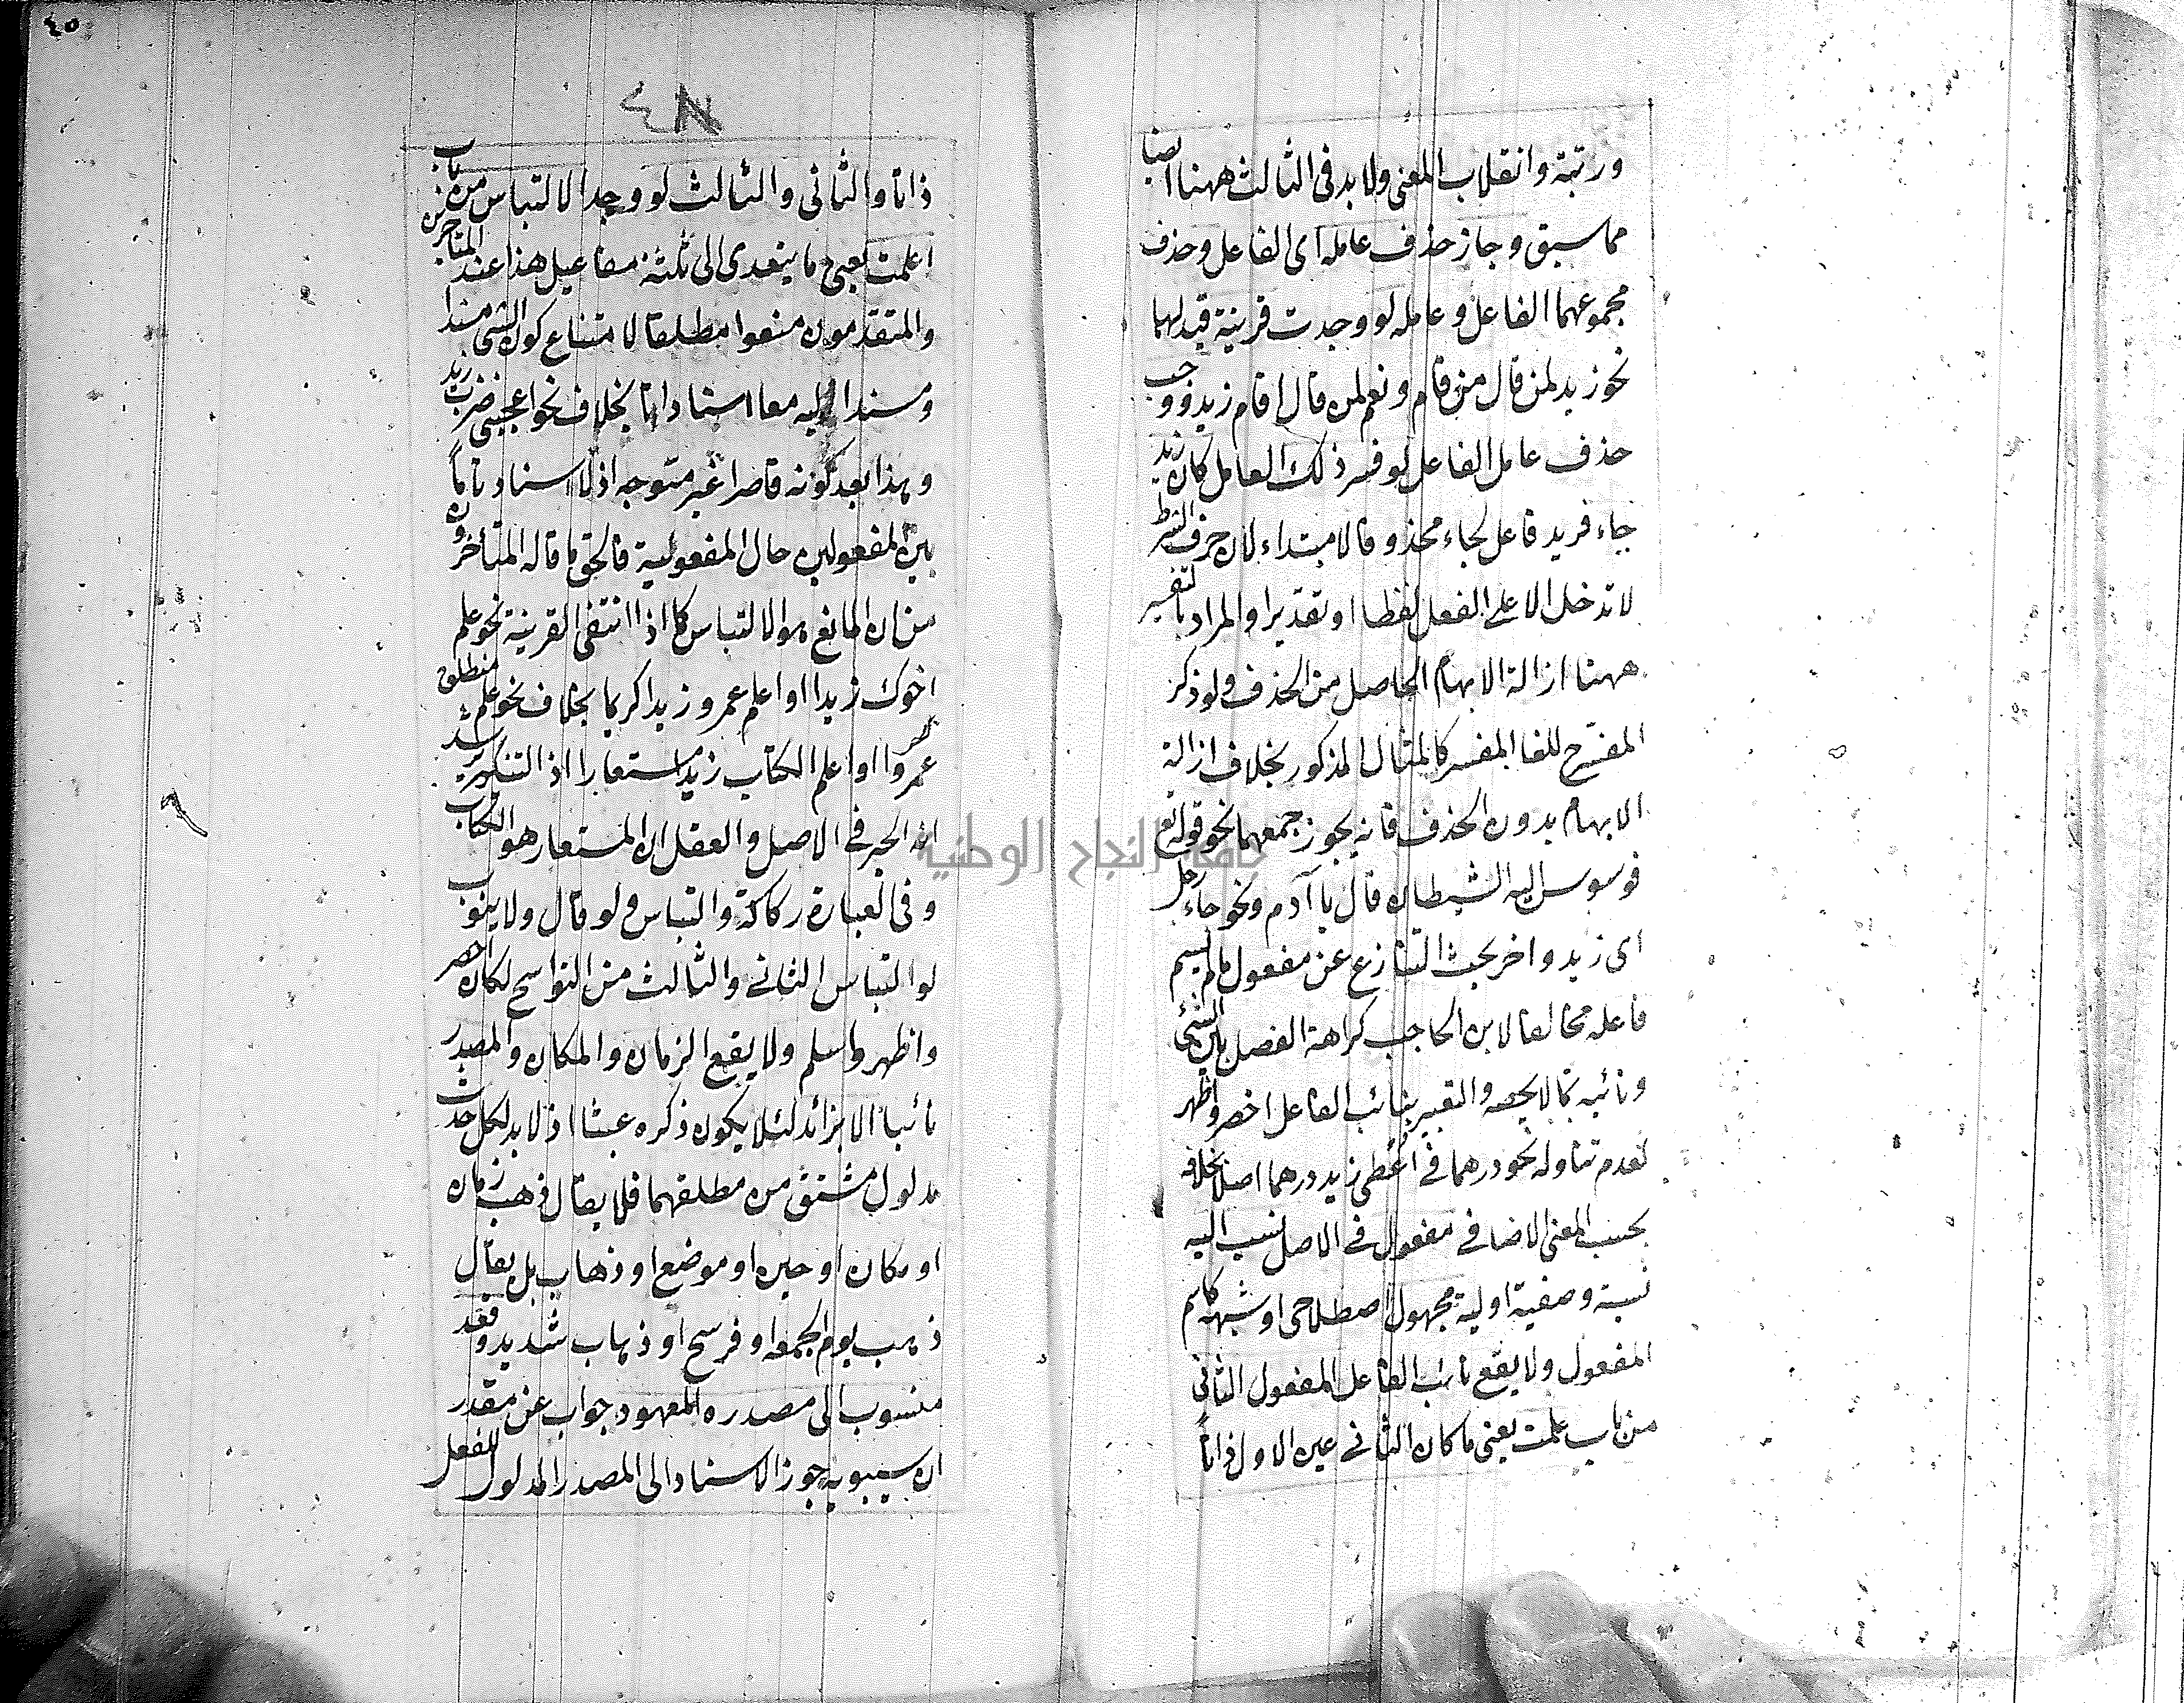 ورتبة وانقلاب المعنى ولا بد فى الثالث ههنا ايضا
مما سبق وجاز حذف عامله اى الفاعل وحذف
مجموعهما الفاعل وعامله لو وجدت قرينة قيد لهما
نحو زيد لمن قال من قام ونعم لمن قال اقام زيد ووجب
حذف عامل الفاعل لو فسر ذلك العامل كان زيد
جاء فزيد فاعل لجاء محذوفا لا مبتداء لان حرف الشرط
لا تدخل الا على الفعل لفظا او تقديرا والمراد بالتفسير
ههنا ازالة الابهام الحاصل من الحذف ولو ذكر
المفسر للغا المفسر كالمثال المذكور بخلاف ازالة
الابهام بدون الحذف فانه يجوز جمعهما نحو قوله تع
فوسوس اليه الشيطان قال يا آدم ونحو جاء رجل
اى زيد واخر بحث التنازع عن مفعول ما لم يسم
فاعله مخالفا لابن الحاجب كراهة الفصل بين الشئ
ونائبه بما لا يخصه والتعبير بنائب الفاعل اخصر واظهر
لعدم تناوله نحو درهما فى اعطى زيد درهما اصلا بخلافه
بحسب المعنى الاضافى مفعول فى الاصل نسب اليه
نسبة وصفية اولية مجهول اصطلاحى او شبهه كاسم
المفعول ولا يقع نائب الفاعل المفعول الثانى
من باب علمت يعنى ما كان الثانى عين الاول ذاتا
٤٥
٤٨
ذاتا والثانى والثالث لو وجد الالتباس من باب
اعلمت يعنى ما يتعدى الى ثلثة مفاعيل هذا عند المتاخرين
والمتقدمون منعوا مطلقا لامتناع كون الشئ مسندا
ومسندا اليه معا اسنادا تاما بخلاف نحو اعجبنى ضرب زيد
وهذا بعد كونه قاصرا غير متوجه اذ لا اسناد تاما
بين المفعولين حال المفعولية فالحق ما قاله المتأخرون
من ان المانع هو الالتباس كما اذا انتفى القرينة نحو علم
اخوك زيدا او اعلم عمرو زيدا كريما بخلاف نحو علم منطلق
عمروا او اعلم الكتاب زيد مستعارا اذ التنكير يرشد
انه الخبر فى الاصل والعقل ان المستعار هو الكتاب
وفى العبارة ركاكة والتباس ولو قال ولا ينوب
لو التباس الثانى والثالث من النواسخ لكان اخصر
واظهر واسلم ولا يقع الزمان والمكان والمصدر
نائبا الا بزائد لئلا يكون ذكره عبثا اذ لا بد لكل حدث
مدلول مشتق من مطلقهما فلا يقال ذهب زمان
او مكان او حين او موضع او ذهاب بل يقال
ذهب يوم الجمعه او فرسخ او ذهاب شديد وقعد
منسوب الى مصدره المعهود جواب عن مقدر
ان سيبويه جوز الاسناد الى المصدر المدلول للفعل
جامعة النجاح الوطنية